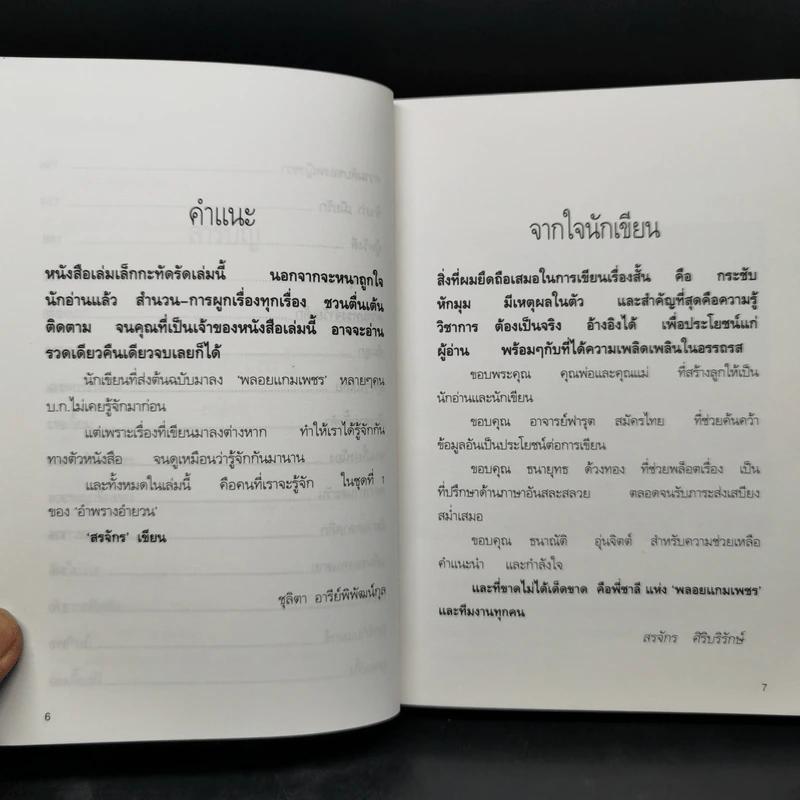 คำแนะ
หนังสือเล่มเล็กกะทัดรัดเล่มนี้ นอกจากจะหนาถูกใจ
นักอ่านแล้ว สำนวน-การผูกเรื่องทุกเรื่อง ชวนตื่นเต้น
ติดตาม จนคุณที่เป็นเจ้าของหนังสือเล่มนี้ อาจจะอ่าน
รวดเดียวคืนเดียวจบเลยก็ได้
นักเขียนที่ส่งต้นฉบับมาลง 'พลอยแกมเพชร' หลายๆคน
บ.ก.ไม่เคยรู้จักมาก่อน
แต่เพราะเรื่องที่เขียนมาลงต่างหาก ทำให้เราได้รู้จักกัน
ทางตัวหนังสือ จนดูเหมือนว่ารู้จักกันมานาน
และทั้งหมดในเล่มนี้ คือคนที่เราจะรู้จัก ในชุดที่ 1
ของ 'อำพรางอำยวน'
'สรจักร' เขียน
ชุลิตา อารีย์พิพัฒน์กุล
6
จากใจนักเขียน
สิ่งที่ผมยึดถือเสมอในการเขียนเรื่องสั้น คือ กระชับ
หักมุม มีเหตุผลในตัว และสำคัญที่สุดคือความรู้
วิชาการ ต้องเป็นจริง อ้างอิงได้ เพื่อประโยชน์แก่
ผู้อ่าน พร้อมๆกับที่ได้ความเพลิดเพลินในอรรถรส
ขอบพระคุณ คุณพ่อและคุณแม่ ที่สร้างลูกให้เป็น
นักอ่านและนักเขียน
ขอบคุณ อาจารย์ฟารุต สมัครไทย ที่ช่วยค้นคว้า
ข้อมูลอันเป็นประโยชน์ต่อการเขียน
ขอบคุณ ธนายุทธ ด้วงทอง ที่ช่วยพล็อตเรื่อง เป็น
ที่ปรึกษาด้านภาษาอันสละสลวย ตลอดจนรับภาระส่งเสบียง
สม่ำเสมอ
ขอบคุณ ธนาณัติ อุ่นจิตต์ สำหรับความช่วยเหลือ
คำแนะนำ และกำลังใจ
และที่ขาดไม่ได้เด็ดขาด คือพี่ชาลี แห่ง 'พลอยแกมเพชร'
และทีมงานทุกคน
สรจักร ศิริบริรักษ์
7